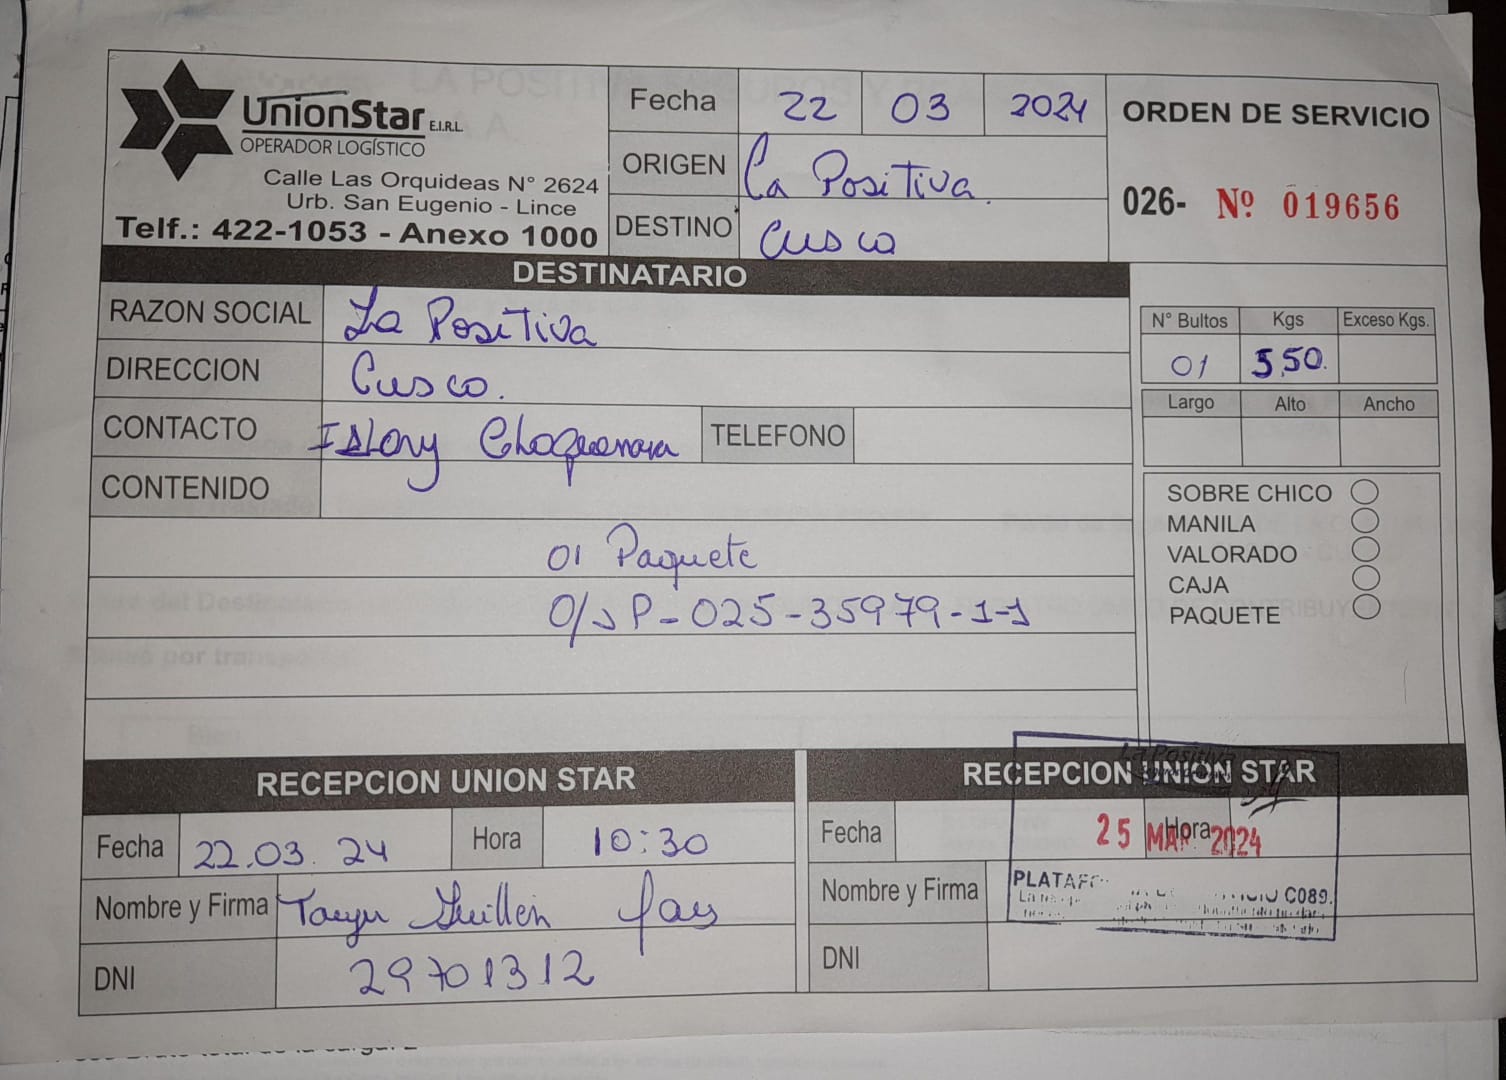 UnionStar E.I.R.L.
OPERADOR LOGÍSTICO
Calle Las Orquideas N° 2624
Urb. San Eugenio - Lince
Telf.: 422-1053 - Anexo 1000
Fecha 22 03 2024
ORIGEN La Positiva.
DESTINO Cusco
ORDEN DE SERVICIO
026- Nº 019656
DESTINATARIO
RAZON SOCIAL La Positiva
DIRECCION Cusco.
CONTACTO TELEFONO
CONTENIDO
01 Paquete
O/S P-025-35979-1-1
N° Bultos Kgs Exceso Kgs.
01 5.50.
Largo Alto Ancho
SOBRE CHICO
MANILA
VALORADO
CAJA
PAQUETE
RECEPCION UNION STAR
Fecha 22.03.24 Hora 10:30
Nombre y Firma Guillen
DNI 29701312
RECEPCION UNION STAR
La Positiva
Fecha Hora
25 MAR 2024
Nombre y Firma
C089.
DNI